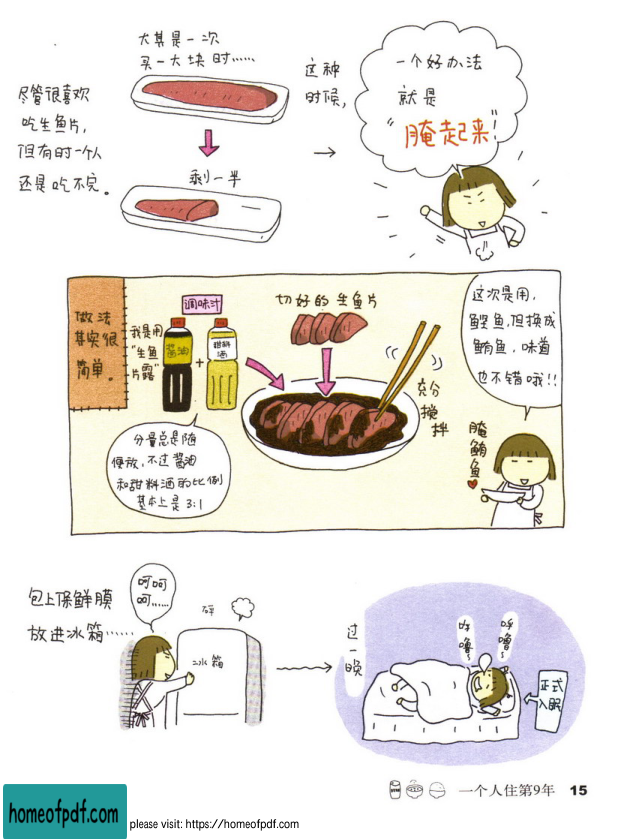 尽管很喜欢
吃生鱼片，
但有时一个人
还是吃不完。
尤其是一次
买一大块时……
剩一半
这种
时候，
一个好办法
就是
“腌起来”！
做法
其实很
简单。
调味汁
我是用
“生鱼
片露”
酱油
+
甜料
酒
切好的生鱼片
充分
搅
拌
分量总是随
便放，不过酱油
和甜料酒的比例
基本上是3:1
这次是用，
鲣鱼，但换成
鲔鱼，味道
也不错哦！！
腌鲔鱼
包上保鲜膜
放进冰箱……
呵呵
呵……
砰
冰箱
过一晚
呼噜~
呼噜~
正式
入眠
一个人住第9年 15
homeofpdf.com
please visit: https://homeofpdf.com